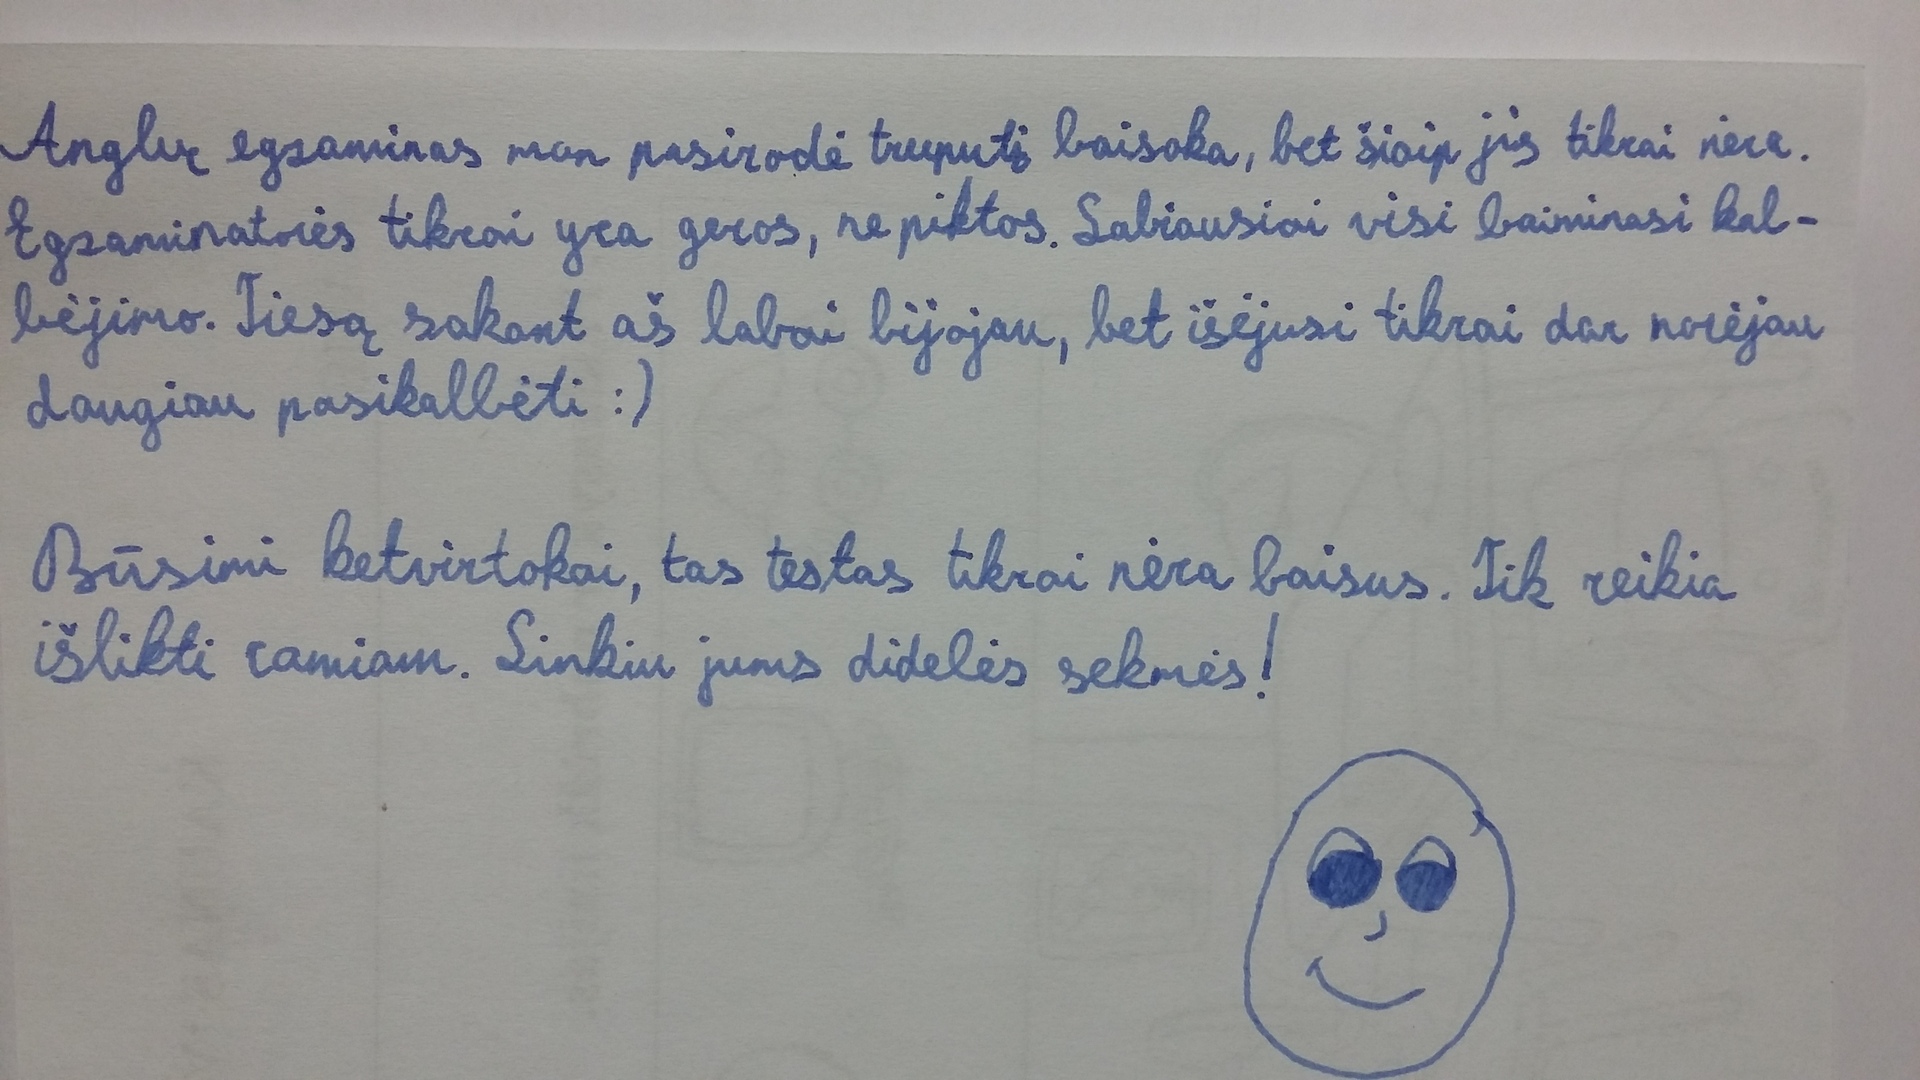 Anglų egzaminas man pasirodė truputį baisoka, bet šiaip jis tikrai nėra.
Egzaminatorės tikrai yra geros, ne piktos. Labiausiai visi baiminasi kal-
bėjimo. Tiesą sakant aš labai bijojau, bet išėjusi tikrai dar norėjau
daugiau pasikalbėti :)
Būsimi ketvirtokai, tas testas tikrai nėra baisus. Tik reikia
išlikti ramiam. Linkiu jums didelės sekmės!